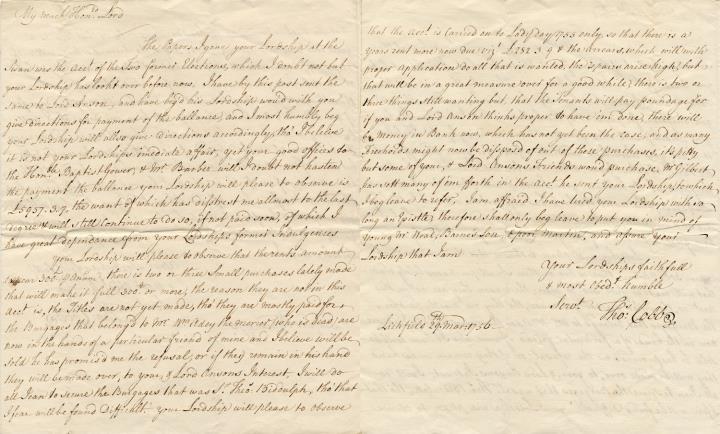 My much Hon:d Lord
The Papers I gave your Lordship at the
Swan was the Acct. of the two former Elections, which I doubt not but
your Lordship has lookt over before now. I have by this post sent the
same to Lord Anson, and have beg'd his Lordship would with you
give directions for payment of the ballance, and I most humbly beg
your Lordship will allso give directions accordingly, tho' I believe
it is not your Lordships imediate affair, yet your good offices to
the Honble. Baptist Gower, & Mr. Barbor will I doubt not hasten
the payment, the ballance your Lordship will please to observe is
£5937.3.9. the want of which has distrest me allmost to the last
degree & will still Continue to do so, if not paid soon, of which I
have great dependance from your Lordships former Indulgences
Your Lordship will please to observe that the rents amount
300£. P Annm., there is two or three Small purchases lately made
that will make it full 320£ or more, the reason they are not in this
Acct. is, the Titles are not yet made, tho' they are mostly paid for.
the Burgages that belong'd to Mr. Wm. Adey the mercer (who is dead) are
now in the hands of a perticular friend of mine and I believe will be
sold he has promis'd me the refusal, or if they remain in his hand
they will be made over, to your, & Lord Ansons Interest, I will do
all I can to secure the Burgages that was Sr. Tho: Bidoulph, tho' that
I fear will be found difficult. your Lordship will please to observe
that the Acct. is carried on to Ladyday 1755 only, so that there is a
years rent more now due vizt. £252.3.9 & the arrears, which will with
proper application do all that is wanted, the repairs arise high, but
that will be in a great measure over for a good while; there is two or
three things still wanting but that the Tenants will pay, poundage for
if you and Lord Anson thinks proper to have 'em done, there will
be Money in Bank now, which has not yet been the case, and as many
Freeholds might now be disposed of out of these purchases, its pitty
but some of your, & Lord Ansons Friends would purchase. Mr. Gilbert
has sett many of 'em forth in the Acct. he sent your Lordship, to which
I beg leave to refer, I am affraid I have tired your Lordship with so
long an Epistle, therefore shall only beg leave to put you in mind of
young Mr. Neal, Barnes Son, & poor Martin, and assure your
Lordship that I am
Your Lordships faithfull
& most Obedt. humble
Servt.
Tho:s Cobb
Lichfield 29 Mar: 1756